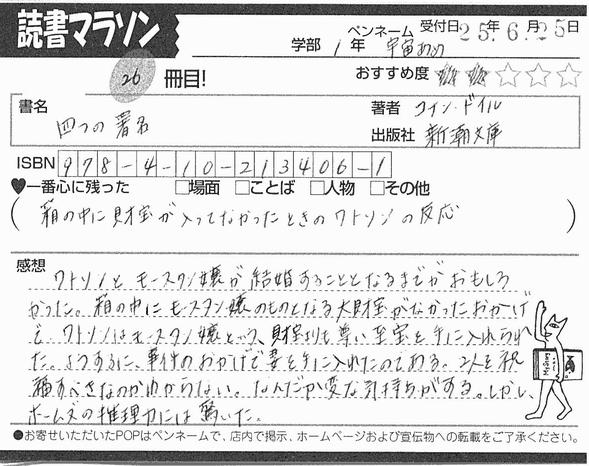 読書マラソン
学部 1年 ペンネーム 宇宙 受付日 25年6月25日
26 冊目! おすすめ度 ☆☆☆
書名 四つの署名
著者 コナン・ドイル
出版社 新潮文庫
ISBN 978-4-10-213406-1
♥一番心に残った □場面 □ことば □人物 □その他
(箱の中に財宝が入ってなかったときのワトソンの反応)
感想
ワトソンとモースタン嬢が結婚することとなるまでがおもしろ
かった。箱の中にモースタン嬢のものとなる大財宝がなかったおかげ
で、ワトソンはモースタン嬢という、財宝よりも尊い至宝を手に入れられ
た。ようするに、事件のおかげで妻を手に入れたのである。2人を祝
福すべきなのかわからない。なんだか変な気持ちがする。しかし、
ホームズの推理力には驚いた。
●お寄せいただいたPOPはペンネームで、店内で掲示、ホームページおよび宣伝物への転載をご了承ください。